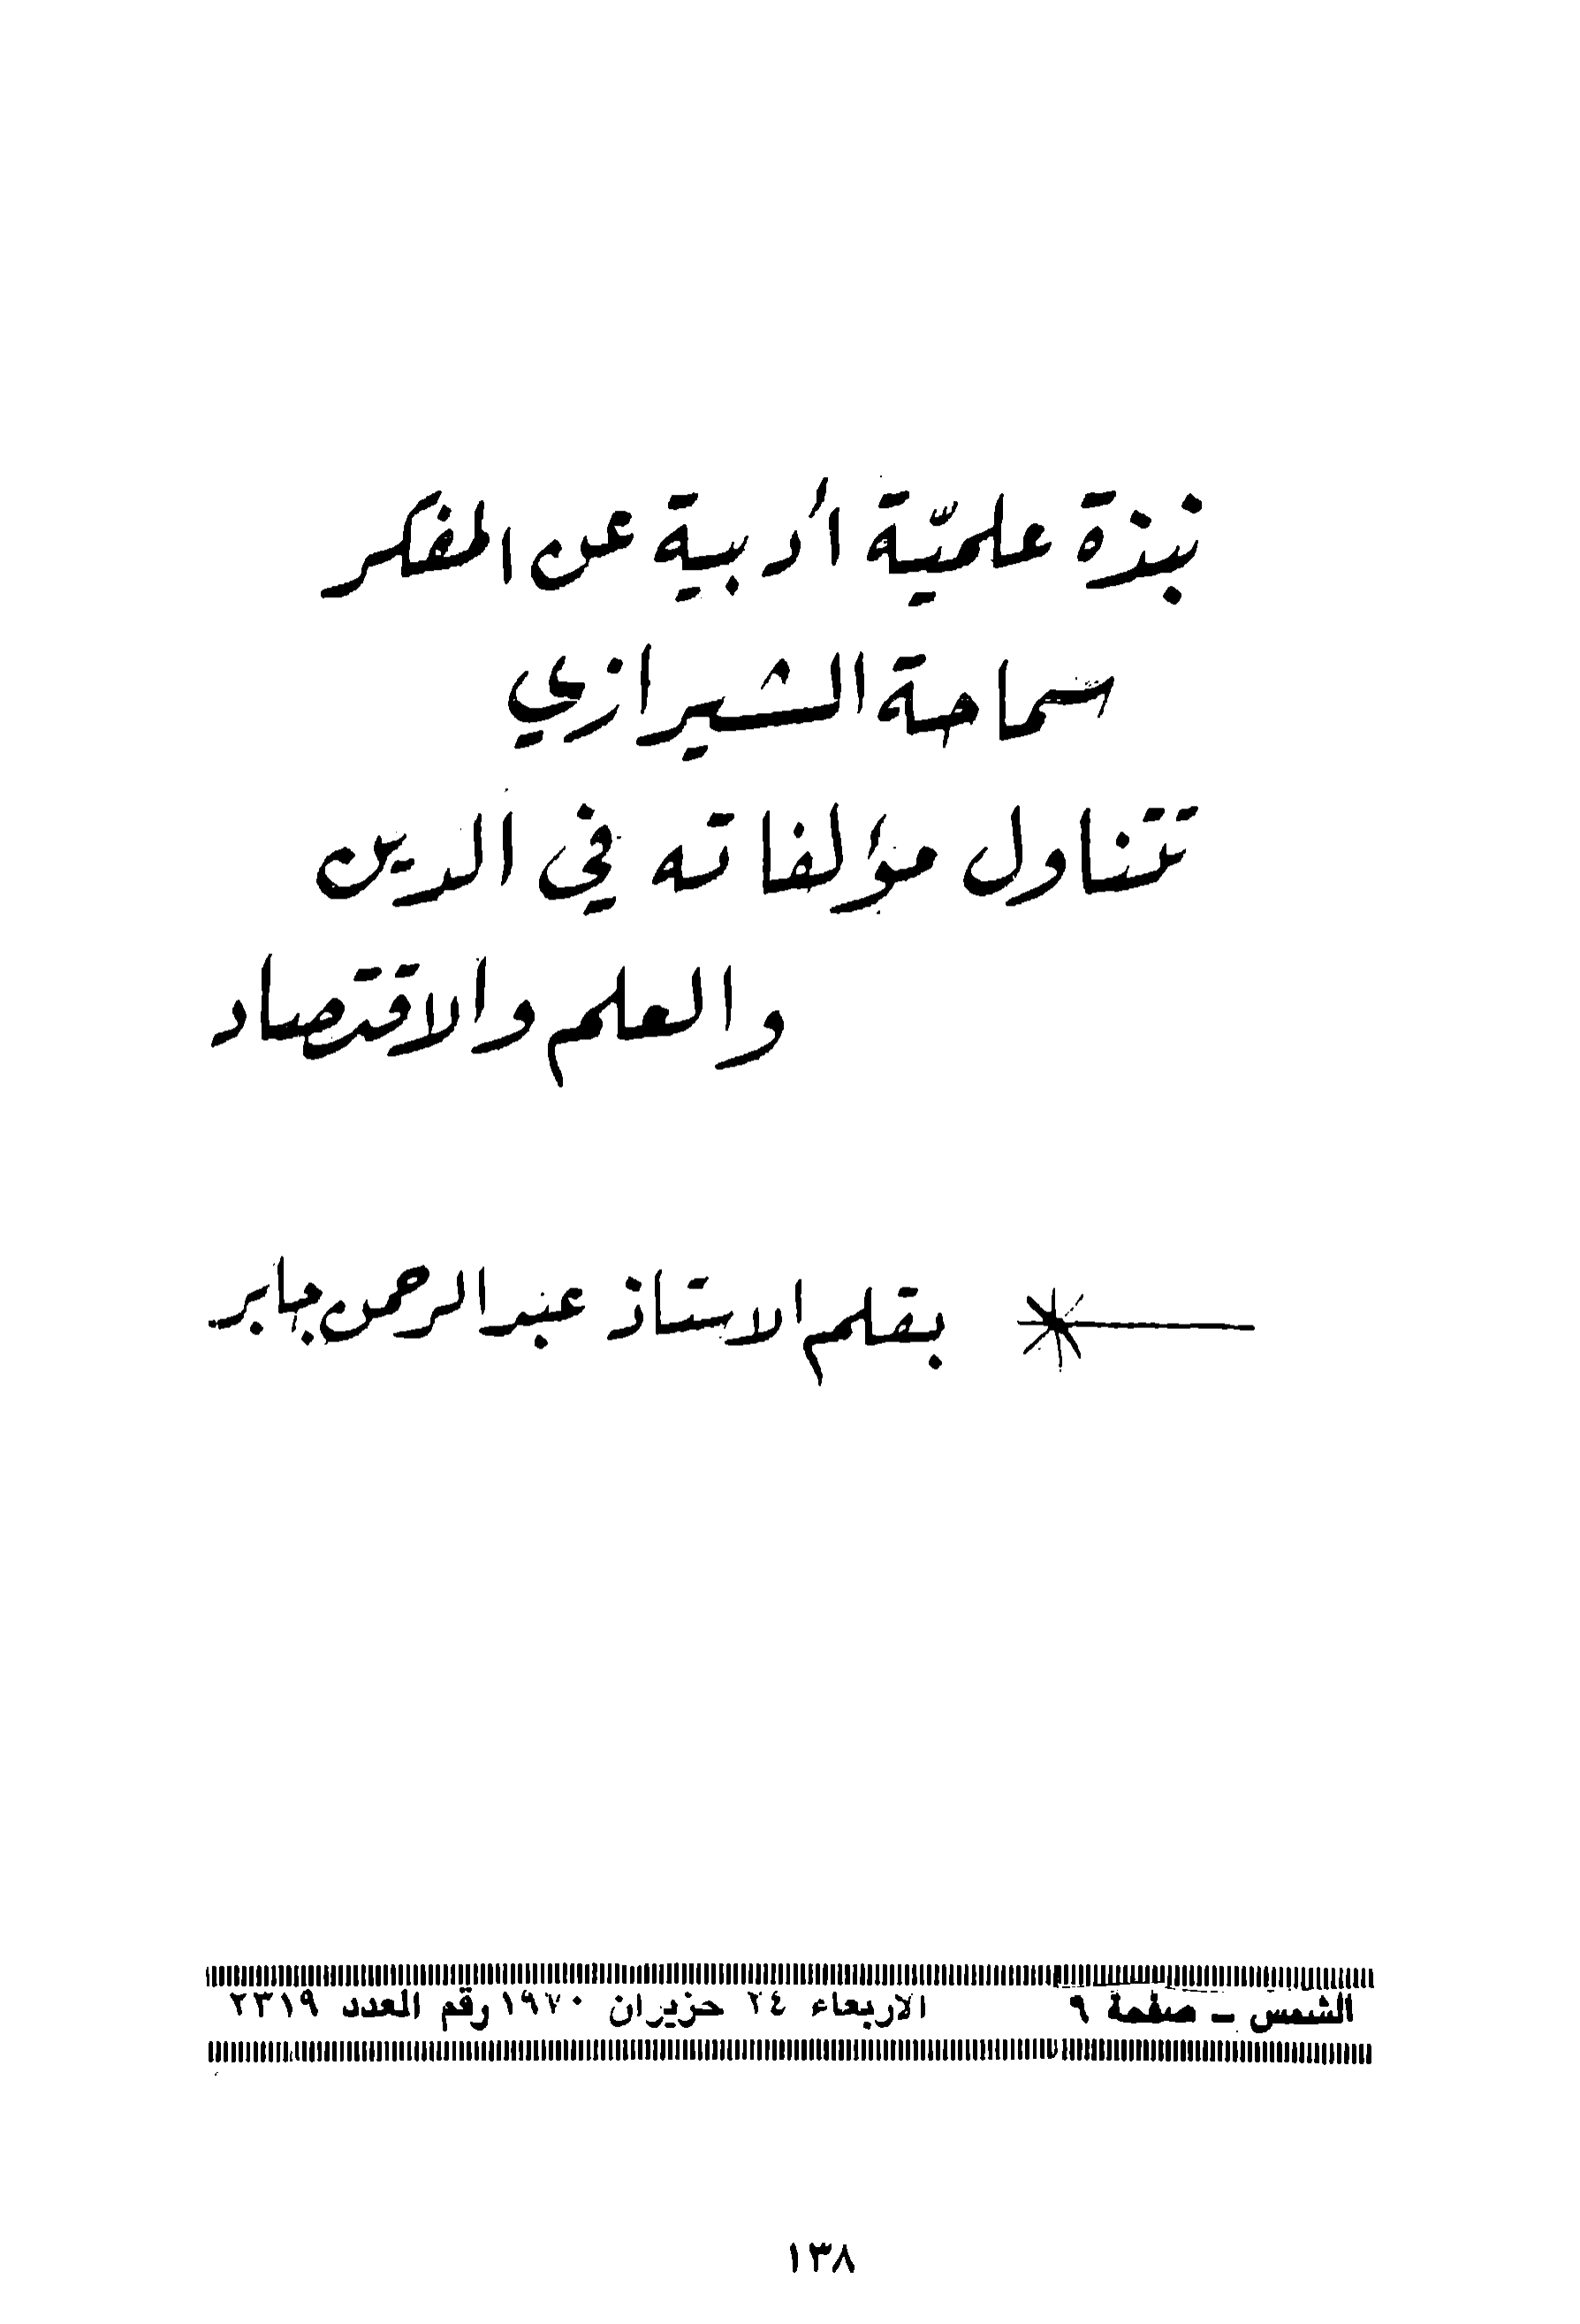 نبذة علميّة أدبية عن المفكر
سماحة الشيرازي
تتناول مؤلفاته في الدين
والعلم والاقتصاد
بقلم الاستاذ عبد الرحمن جابر
الشمس ــ صفحة ٩ الاربعاء ٢٤ حزيران ١٩٧٠ رقم العدد ٢٣١٩
١٣٨